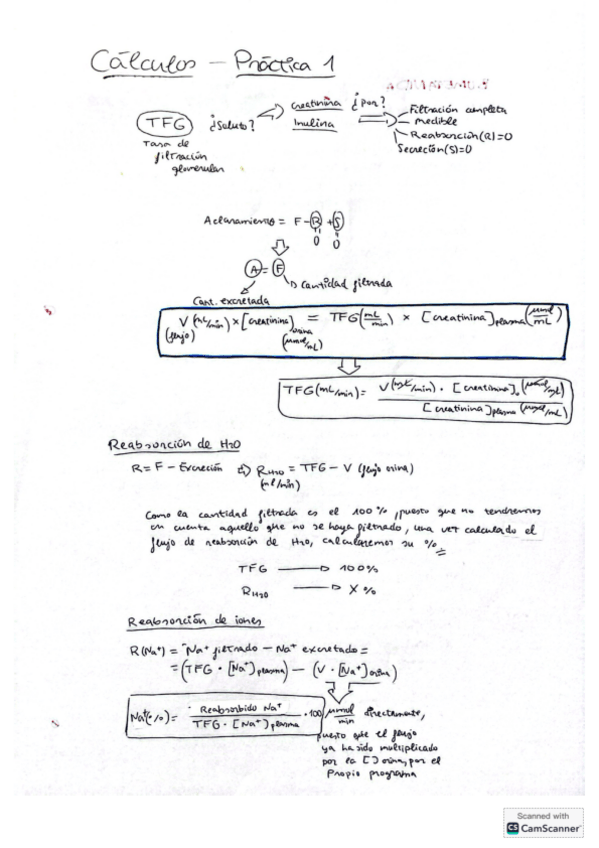 Cálculos - Práctica 1
TFG
Tasa de
filtración
glomerular
¿Soluto?
Creatinina
Inulina
¿Por?
Filtración completa
medible
Reabsorción (R)=0
Secreción(S)=0
Aclaramiento = F-R+S
0 0
A = F
Cantidad filtrada
Cant. excretada
V (mL/min) × [creatinina] orina (µmol/mL) = TFG (mL/min) × [creatinina]plasma (µmol/mL)
(flujo)
TFG (mL/min) = V (mL/min) · [creatinina]o (µmol/mL)
[creatinina]plasma (µmol/mL)
Reabsorción de H2O
R = F - Excreción ⇒ R H2O = TFG - V (flujo orina)
(ml/min)
Como la cantidad filtrada es el 100%, puesto que no tendremos
en cuenta aquello que no se haya filtrado, una vez calculado el
flujo de reabsorción de H2O, calcularemos su %
TFG → 100%
R H2O → X %
Reabsorción de iones
R(Na+) = Na+ filtrado - Na+ excretado =
= (TFG · [Na+]plasma) - (V · [Na+]orina)
Na+(%) = Reabsorbido Na+ · 100
TFG · [Na+]plasma
µmol/min directamente,
puesto que el flujo
ya ha sido multiplicado
por la [ ] orina, por el
Propio programa
Scanned with
CS CamScanner